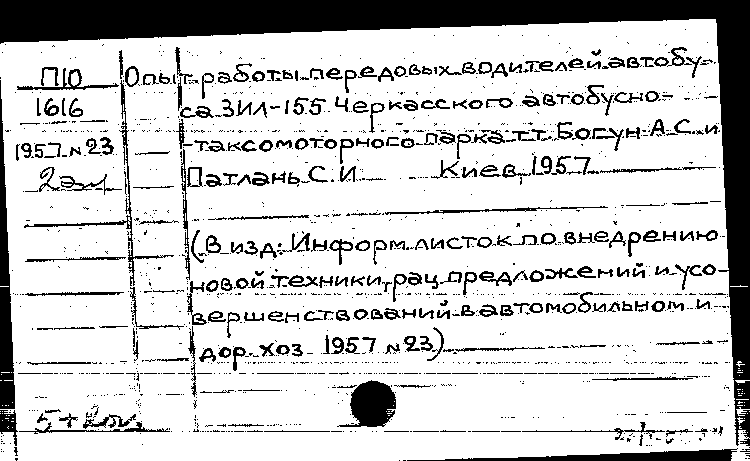 П10 Опыт работы передовых водителей автобу-
1616 са ЗИЛ-155 Черкасского автобусно-
1957 №23 -таксомоторного парка т.т. Богун А.С. и
Патлань С.И. Киев, 1957
(В изд: Информ. листок по внедрению
новой техники, рац. предложений и усо-
вершенствований в автомобильном и
дор. хоз. 1957 №23)